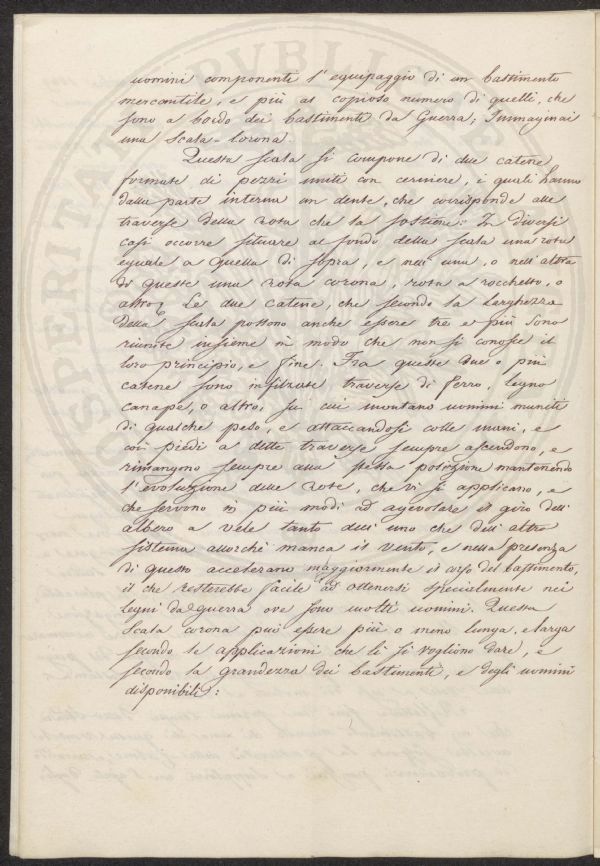 uomini componenti l'equipaggio di un bastimento
mercantile, e più al copioso numero di quelli, che
sono a bordo dei bastimenti da Guerra, Immaginai
una Scala-Corona.
Questa scala si compone di due catene
formate di pezzi uniti con cerniere, i quali hanno
dalla parte interna un dente, che corrisponde alle
traverse della rota che la sostiene. In diversi
casi occorre situare al fondo della scala una rota
eguale a quella di sopra, e nell'una, o nell'altra
di queste una rota corona, rota a rocchetto, o
altro. Le due catene, che secondo la larghezza
della scala possono anche essere tre e più sono
riunite insieme in modo che non si conosce il
loro principio, e fine. Fra queste due o più
catene sono infilzate traverse di ferro, legno
canape, o altro, su cui montano uomini muniti
di qualche peso, e attaccandosi colle mani, e
coi piedi a dette traverse sempre ascendono, e
rimangono sempre alla stessa posizione mantenendo
l'evoluzione delle rote, che vi si applicano, e
che servono in più modi ad agevolare il giro dell'
albero a vele tanto dell'uno che dell'altro
sistema allorché manca il vento, e nella presenza
di questo accelerano maggiormente il corso del bastimento,
il che resterebbe facile ad ottenersi specialmente nei
legni da guerra ove sono molti uomini. Questa
Scala corona può essere più o meno lunga, e larga
secondo le applicazioni che le si vogliono dare, e
secondo la grandezza dei bastimenti, e degli uomini
disponibili: